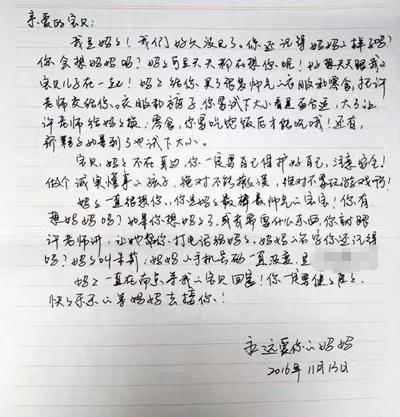 亲爱的宝贝:
我是妈妈!我们好久没见了。你还记得妈妈的样子吗?
你会想妈妈吗?妈妈可是天天都在想你呢!好想天天跟我的
宝贝儿子在一起!妈妈给你买了很多帅气的衣服和零食,托许
老师交给你。衣服和裤子,你要试下大小看是否合适,大了让
许老师给妈妈换,零食,你要吃完饭后才能吃哦!还有,
新鞋子也要试下大小。
宝贝,妈妈不在身边,你一定要自己保护好自己,注意安全!
做个诚实懂事的孩子,绝对不能撒谎,绝对不要玩游戏啊!
妈妈一直很想你,你是妈妈最帅气的宝宝!你有
想妈妈吗?如果你想妈妈了,或者需要什么东西,你就跟
许老师讲,让她帮你打电话给妈妈,妈妈的名字你还记得
吗?妈妈叫朱莉,妈妈的手机号码一直没变,是
妈妈一直在南京等我的宝贝回家!你一定要健健康康、
快快乐乐的等妈妈去接你!
永远爱你的妈妈
2016年11月13日